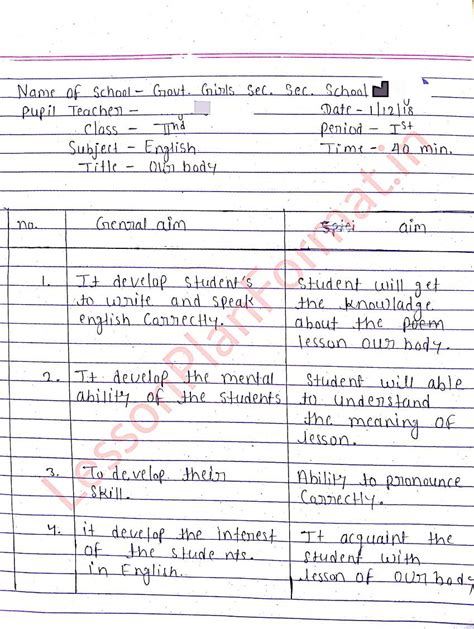 Name of School - Govt. Girls Sec. Sec. School
Pupil Teacher -
Date - 1/12/18
Class - IInd
Period - Ist
Subject - English
Time - 40 min.
Title - Our body
no.
Genral aim
aim
1.
It develop student's
to write and speak
english Carrectly.
Student will get
the knowladge
about the poem
lesson our body.
2.
It develop the mental
ability of the students
Student will able
to understand
the meaning of
lesson.
3.
To develop their
skill.
Ability to pronounce
Carrectly.
4.
it develop the interest
of the stude nts.
in English.
It acquaint the
student with
lesson of our body
LessonPlanFormat.in